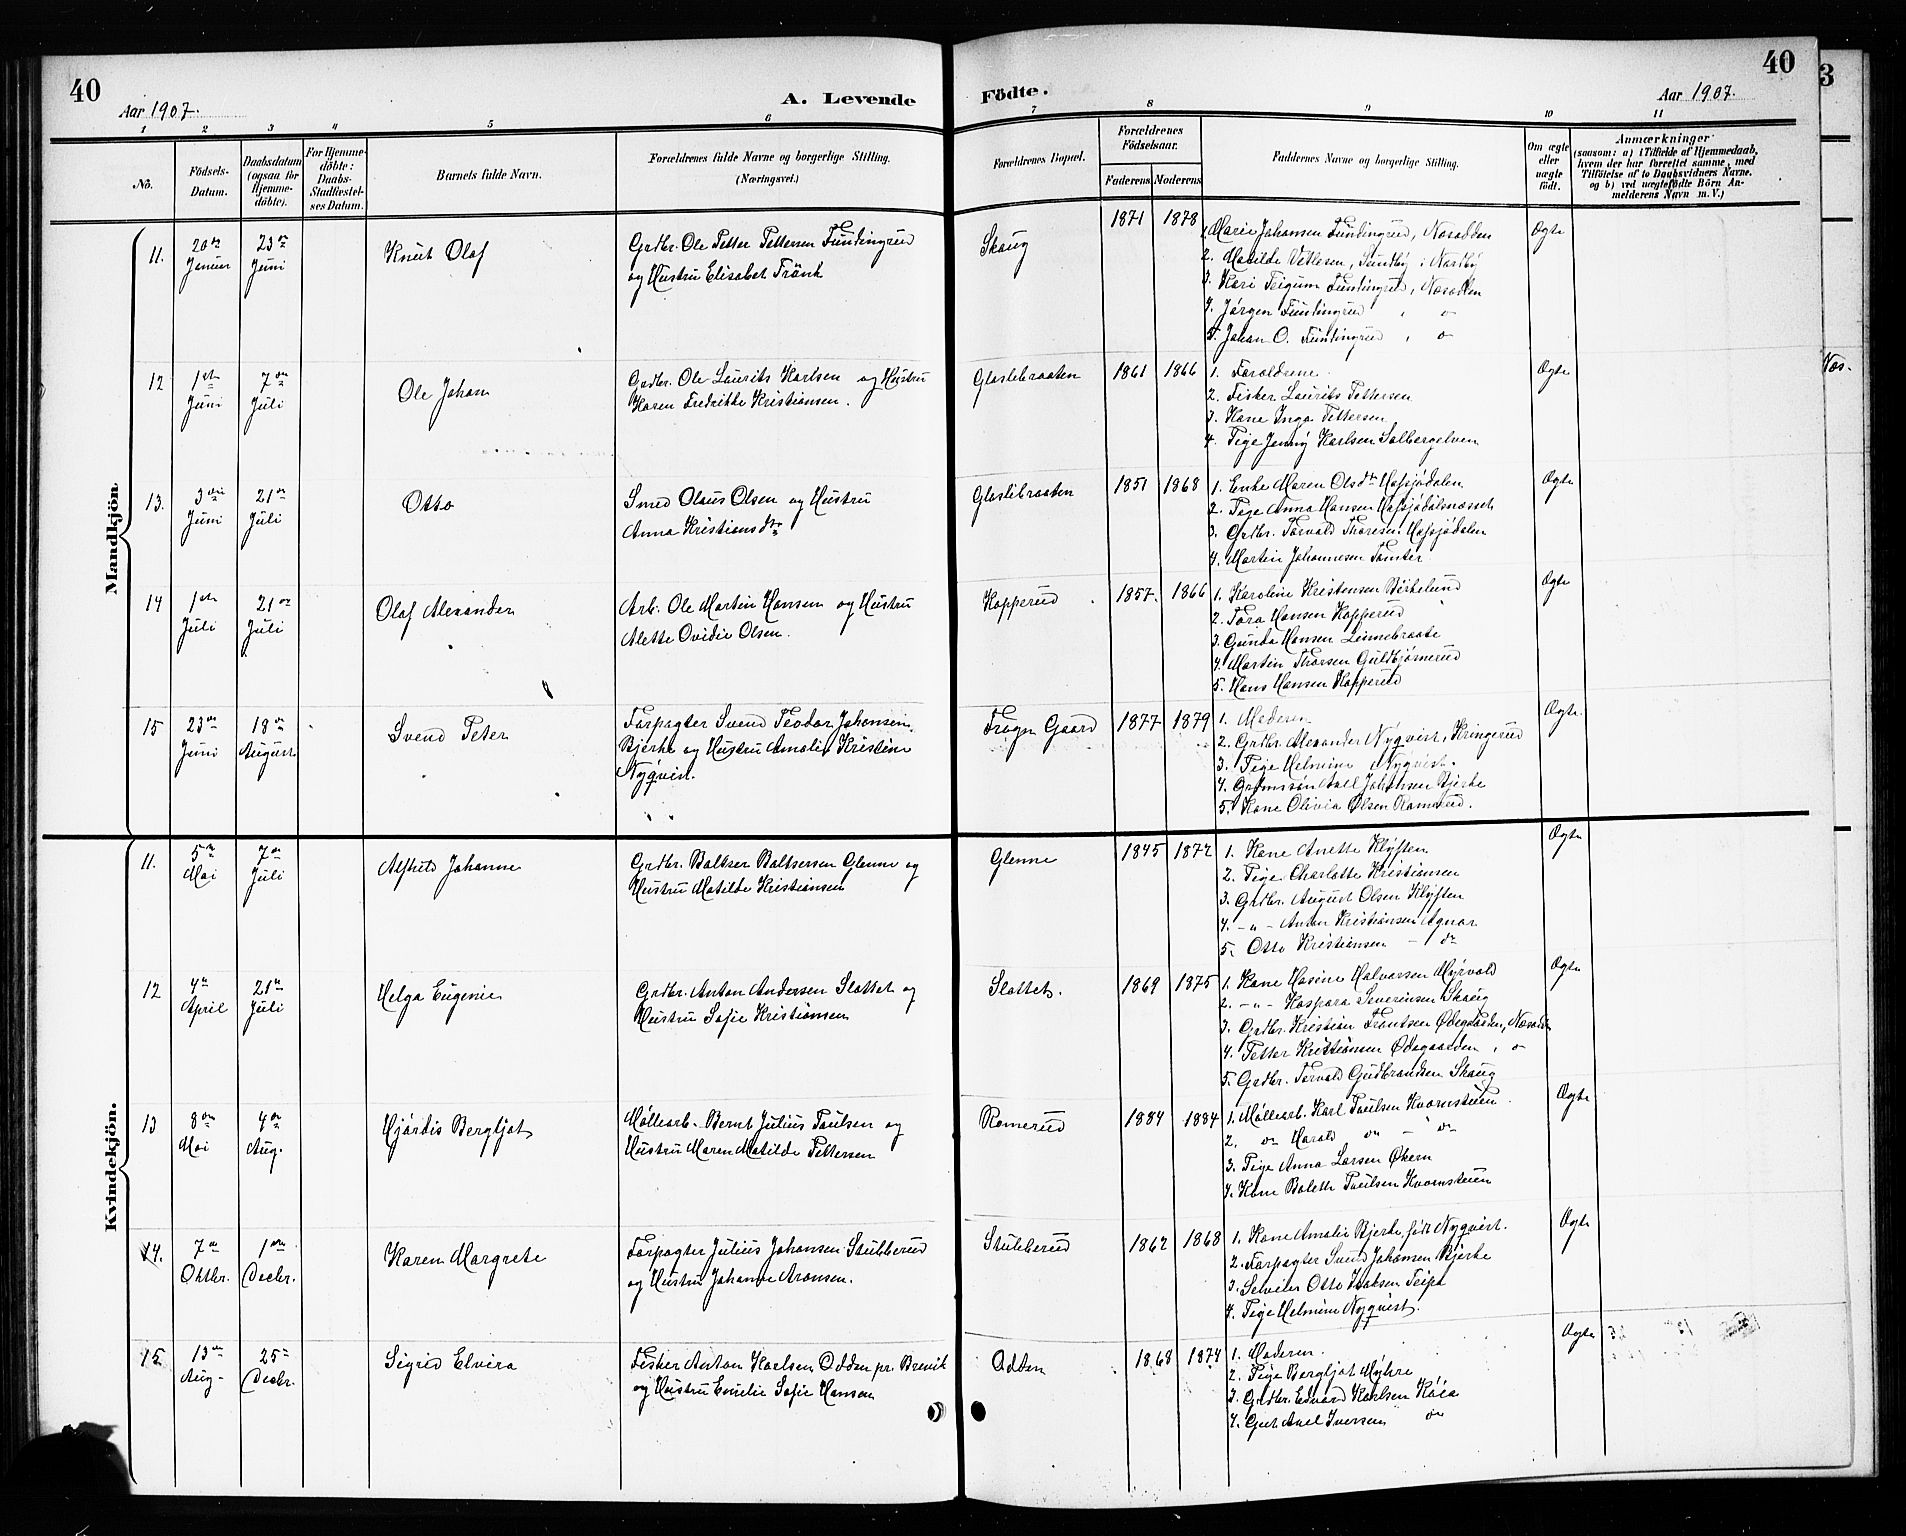 40
Aar 1907.
A. Levende
Födte.
Aar 1907.
40
3
1 2 3 4 5 6 7 8 9 10 11
No.
Födsels-
Datum.
Daabsdatum
(ogsaa for
Hjemme-
döbte).
For Hjemme-
döbte:
Daabs-
Stadfæstel-
ses Datum.
Barnets fulde Navn.
Forældrenes fulde Navne og borgerlige Stilling.
(Næringsvei.)
Forældrenes Bopæl.
Forældrenes
Födselsaar.
Faderens Moderens
Faddernes Navne og borgerlige Stilling.
Om ægte
eller
uægte
födt.
Anmærkninger
(saasom: a) i Tilfælde af Hjemmedaab,
hvem der har forrettet samme, med
Tilföielse af to Daabsvidners Navne,
og b) ved uægtefödte Börn An-
melderens Navn m. V.)
Mandkjön
11.
20de
Januar
23de
Juni
Knut Olaf
Grdbr. Ole Petter Pettersen Fundingrud
og Hustru Elisabet Frönk
Skaug
1871 1878
1. Marie Johansen Fundingrud, Nesodden
2. Matilde Vetlesen, Sundby i Nordby
3. Kari Teigum Fundingrud, Nesodden
4. Jørgen Fundingrud " o
5. Johan O. Fundingrud " o
Ægte
12
1ste
Juni
7de
Juli
Ole Johan
Grdbr. Ole Laurits Karlsen og Hustru
Karen Fredrikke Kristiansen.
Glaslibraaten
1861 1866
1. Forældrene.
2. Fisker Laurits Pettersen
3. Kone Inga Pettersen
4. Pige Jenny Karlsen Solbergelven
Ægte
13.
3die
Juni
21de
Juli
Otto
Smed Olaus Olsen og Hustru
Anna Kristiansdtr
Glaslibraaten
1851 1868
1. Enke Maren Olsdtr Hafsjødalen
2. Pige Anna Hansen Hafsjødalnesset
3. Grdbr. Torvald Thoresen Hafsjødalen
4. Martin Johannesen Tomter
Ægte
14
1ste
Juli
21de
Juli
Olaf Alexander
Arb. Ole Martin Hansen og Hustru
Alette Ovidie Olsen.
Kopperud
1857. 1866
1. Karoline Kristensen Birkelund
2. Tora Hansen Kopperud
3. Gunda Hansen Linnebraate
4. Martin Thorsen Guldbjørnerud
5. Hans Hansen Kopperud
Ægte
15
23de
Juni
18de
August
Svend Peter
Forpagter Svend Teodor Johansen
Bjerke og Hustru Amalie Kristine
Nyqvist.
Frogn Gaard
1877 1879
1. Moderen
2. Grdbr. Alexander Nyqvist, Kringerud
3. Pige Helmine Nyqvist.
4. Grdmssøn Axel Johansen Bjerke
5. Kone Olivia Olsen Romerud.
Ægte
Kvindekjön.
11.
5te
Mai
7de
Juli
Alfhild Johanne
Grdbr. Baltser Baltsersen Glenne og
Hustru Matilde Kristiansen
Glenne
1845 1872
1. Kone Anette Kløften
2. Pige Charlotte Kristiansen
3. Grdbr. August Olsen Kløften
4. – " – Anton Kristiansen Agnor
5. Otto Kristiansen – do
Ægte
12
4de
April
21de
Juli
Helga Eugenie
Grdbr. Anton Andersen Slottet og
Hustru Sofie Kristiansen
Slottet.
1869 1875
1. Kone Hasine Halvorsen Myrvold
2. – " – Kaspara Severinsen Skaug
3. Grdbr. Kristian Frantsen Ødegaarden, Nesodden
4. Petter Kristiansen Ødegaarden, o
5. Grdbr. Torvald Gudbrandsen Skaug
Ægte
13
8de
Mai
4de
Aug.
Hjördis Bergljot
Møllearb. Bernt Julius Paulsen og
Hustru Maren Matilde Pettersen
Romerud
1884 1884
1. Møllearb. Karl Paulsen Kvernstuen
2. do Harald do – do
3. Pige Anna Larsen Økern
4. Kone Bolette Paulsen Kvernstuen
Ægte
14.
7de
Oktbr.
1ste
Decbr.
Karen Margrete
Forpagter Julius Johansen Stubberud
og Hustru Johanne Aronsen.
Stubberud
1862 1868
1. Kone Amalie Bjerke, født Nyqvist.
2. Forpagter Svend Johansen Bjerke
3. Selveier Otto Isaksen Teipe
4. Pige Helmine Nyqvist.
Ægte
15
13de
Aug.
25de
Decbr.
Sigrid Elvira
Fisker Anton Karlsen Odden pr. Brevik
og Hustru Emelie Sofie Hansen
Odden
1868 1874
1. Moderen.
2. Pige Bergljot Myhre
3. Grdbr. Edvard Karlsen
4. Gut Axel Iversen do
Ægte
Næs-